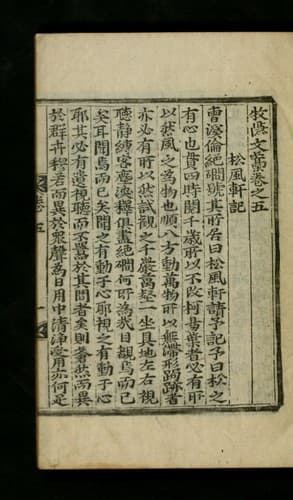 牧隱文藁卷之五
松風軒記
曹溪倫絶磵號其所居曰松風軒請予記予曰松之
有心也貫四時閱千歲所以不改柯易葉者必有所
以然風之爲物也順八方動萬物所以無滯形蹢跡者
亦必有所以然試觀之千巖萬壑一坐具地左右視
聽靜練客塵漠釋俱盡絶磵何所爲哉目覩焉而已
矣耳聞焉而已矣聞之有動于心耶視之有動于心
耶其必有違視聽而不囂於其間者矣則蕭然而異
於群卉穆若而異於衆聲爲日用中清淨受用亦何足
卷五